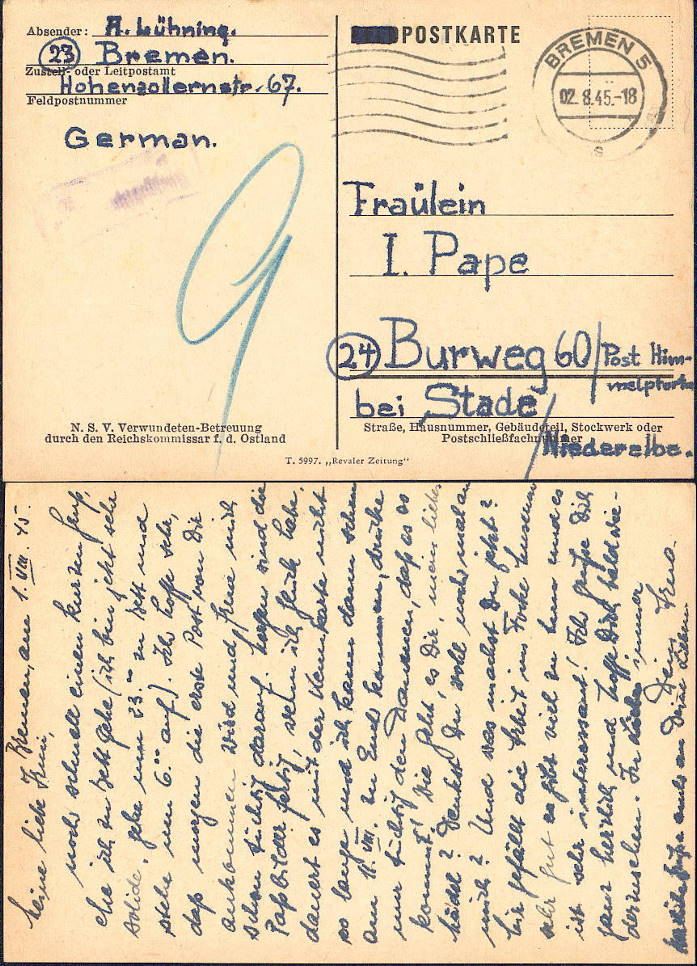 Absender: A. Lühning.
(23) Bremen.
Zustell- oder Leitpostamt
Hohenzollernstr. 67.
Feldpostnummer
German.
9
N. S. V. Verwundeten-Betreuung
durch den Reichskommissar f. d. Ostland
POSTKARTE
BREMEN 5
02.8.45.-18
s
Fräulein
I. Pape
(24) Burweg 60/Post Him-
melpforten
bei Stade/
Straße, Hausnummer, Gebäudeteil, Stockwerk oder
Postschließfachnummer
Niederelbe.
T. 5997. „Revaler Zeitung“
Bremen, am 1. VIII. 45.
Meine liebe
noch schnell einen kurzen Gruß,
ehe ich zu Bett gehe (ich bin jetzt sehr
solide, gehe um 23.00 zu Bett und
stehe um 6.00 auf). Ich hoffe sehr,
daß morgen die erste Post von Dir
ankommen wird und freue mich
schon tüchtig darauf. Morgen sind die
Paßbilder fertig, wenn ich Glück habe,
dauert es mit der Kennkarte nicht
so lange und ich kann dann schon
am 11. VIII. zu Euch kommen, drücke
nur tüchtig den Daumen, daß es so
kommt! Wie geht es Dir, mein liebes
Mädel? Denkst Du wohl noch mal an
mich? Und was machst Du jetzt?
Mir gefällt die Arbeit im Focke Museum
sehr gut es gibt viel zu tun und es
ist sehr interessant! Ich grüße Dich
ganz herzlich und hoffe Dich bald wie-
derzusehen. In Liebe immer
Dein
Herzliche Grüße auch an Deine Eltern